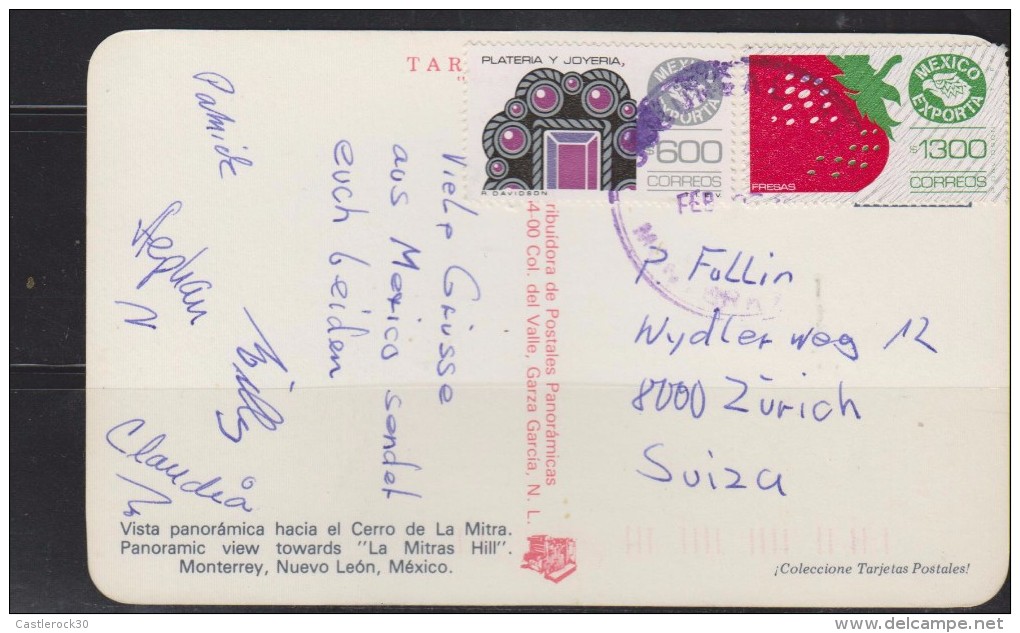 TAR
PLATERIA Y JOYERIA,
MEXICO
EXPORTA
$600
CORREOS
R DAVIDSON
MEXICO
EXPORTA
$1300
CORREOS
FRESAS
FEB
Viele Grüsse
aus Mexico sendet
euch beiden
Stephan
Willy
Claudia
ribuidora de Postales Panorámicas
4-00 Col. del Valle, Garza García, N. L.
P. Füllin
Wydlerweg 12
8000 Zürich
Suiza
Vista panorámica hacia el Cerro de La Mitra.
Panoramic view towards "La Mitras Hill".
Monterrey, Nuevo León, México.
¡Coleccione Tarjetas Postales!
Castlerock30
delcampe.net